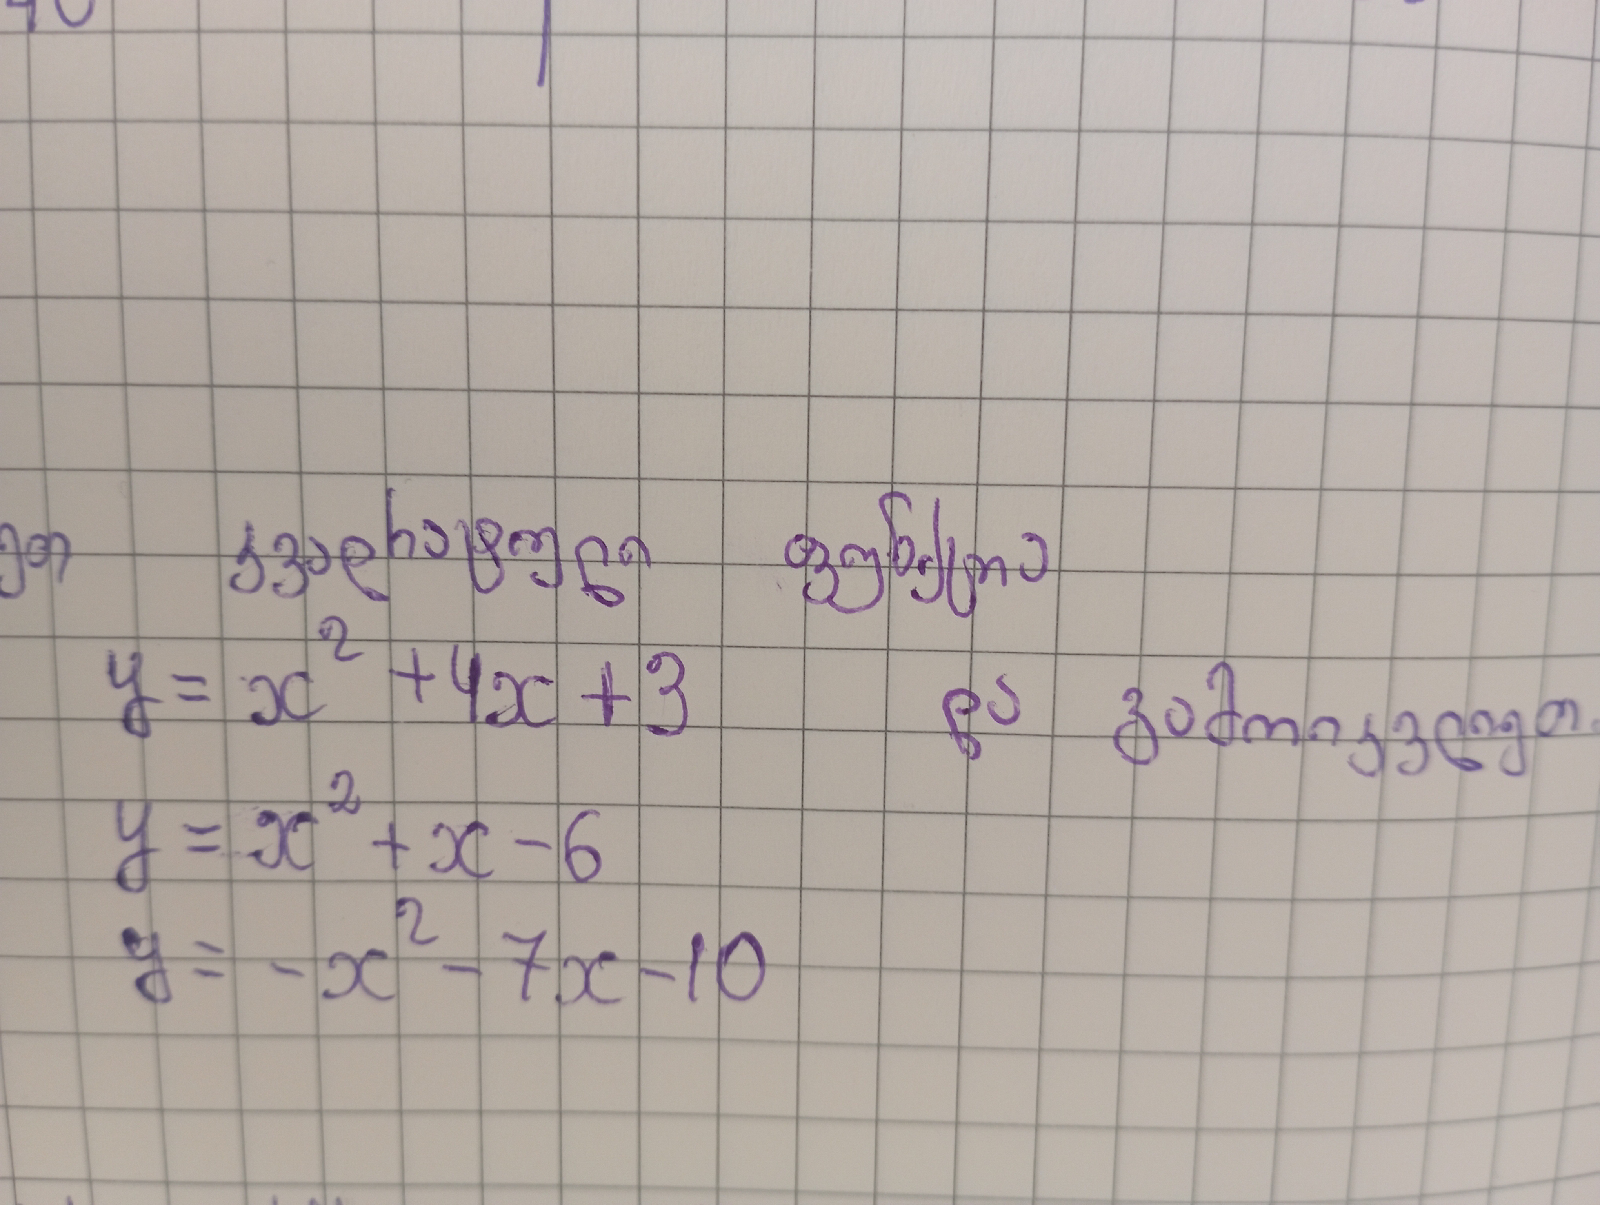 კვადრატული ფუნქცია
y = x² + 4x + 3 და გამოიკვლიეთ.
y = x² + x - 6
y = -x² - 7x - 10